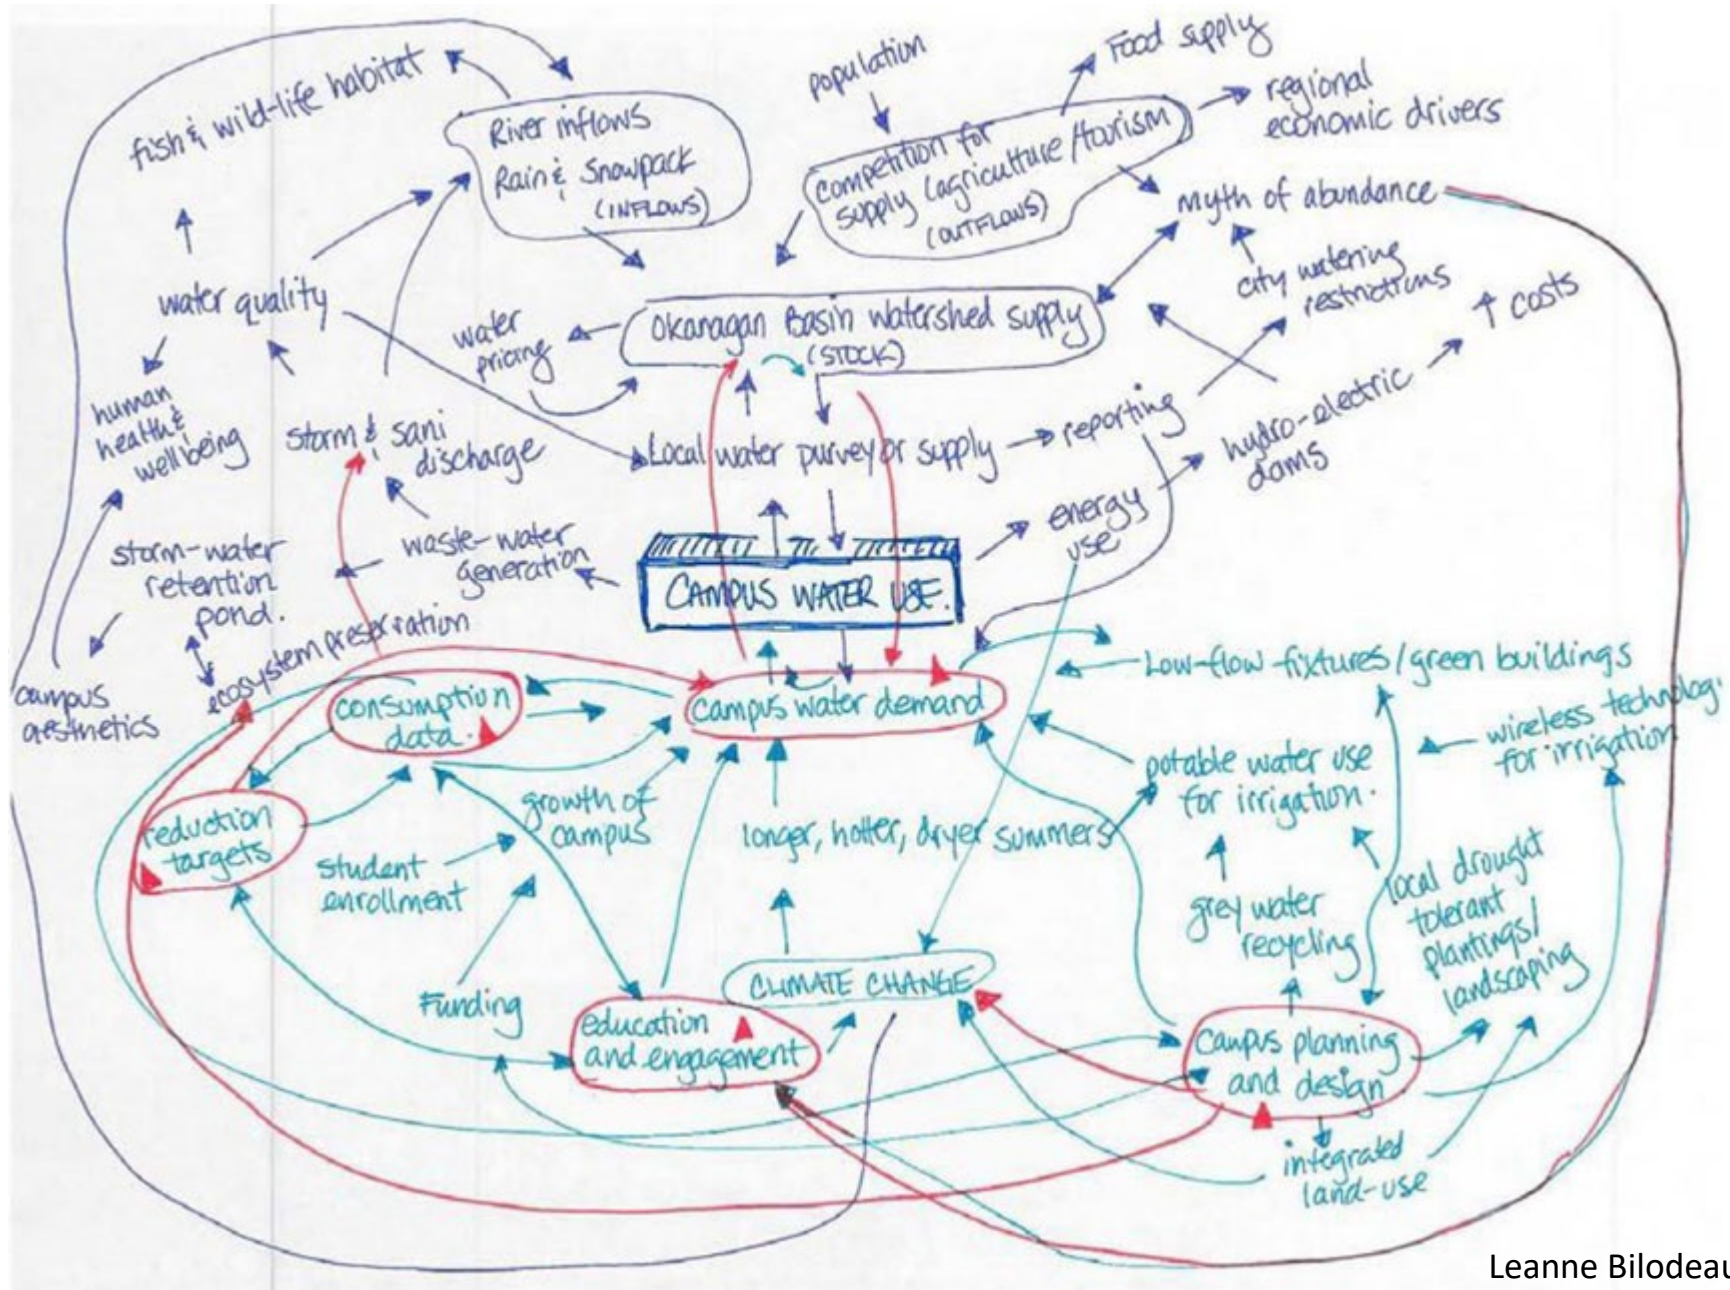 fish & wild-life habitat
River inflows
Rain & Snowpack
(INFLOWS)
population
Food supply
regional
economic drivers
competition for
supply (agriculture/tourism)
(OUTFLOWS)
myth of abundance
city watering
restrictions
↑ costs
water quality
water
pricing
Okanagan Basin Watershed supply
(STOCK)
human
health &
wellbeing
storm & sani
discharge
Local water purveyor supply
reporting
hydro-electric
dams
energy
use
storm-water
retention
pond.
waste-water
generation
CAMPUS WATER USE.
ecosystem preservation
campus
aesthetics
consumption
data.
campus water demand
Low-flow fixtures/green buildings
wireless technolog.
for irrigation
potable water use
for irrigation.
reduction
targets
growth of
campus
student
enrollment
longer, hotter, dryer summers
grey water
recycling
local drought
tolerant
plantings/
landscaping
Funding
CLIMATE CHANGE
education
and engagement
campus planning
and design
integrated
land-use
Leanne Bilodeau